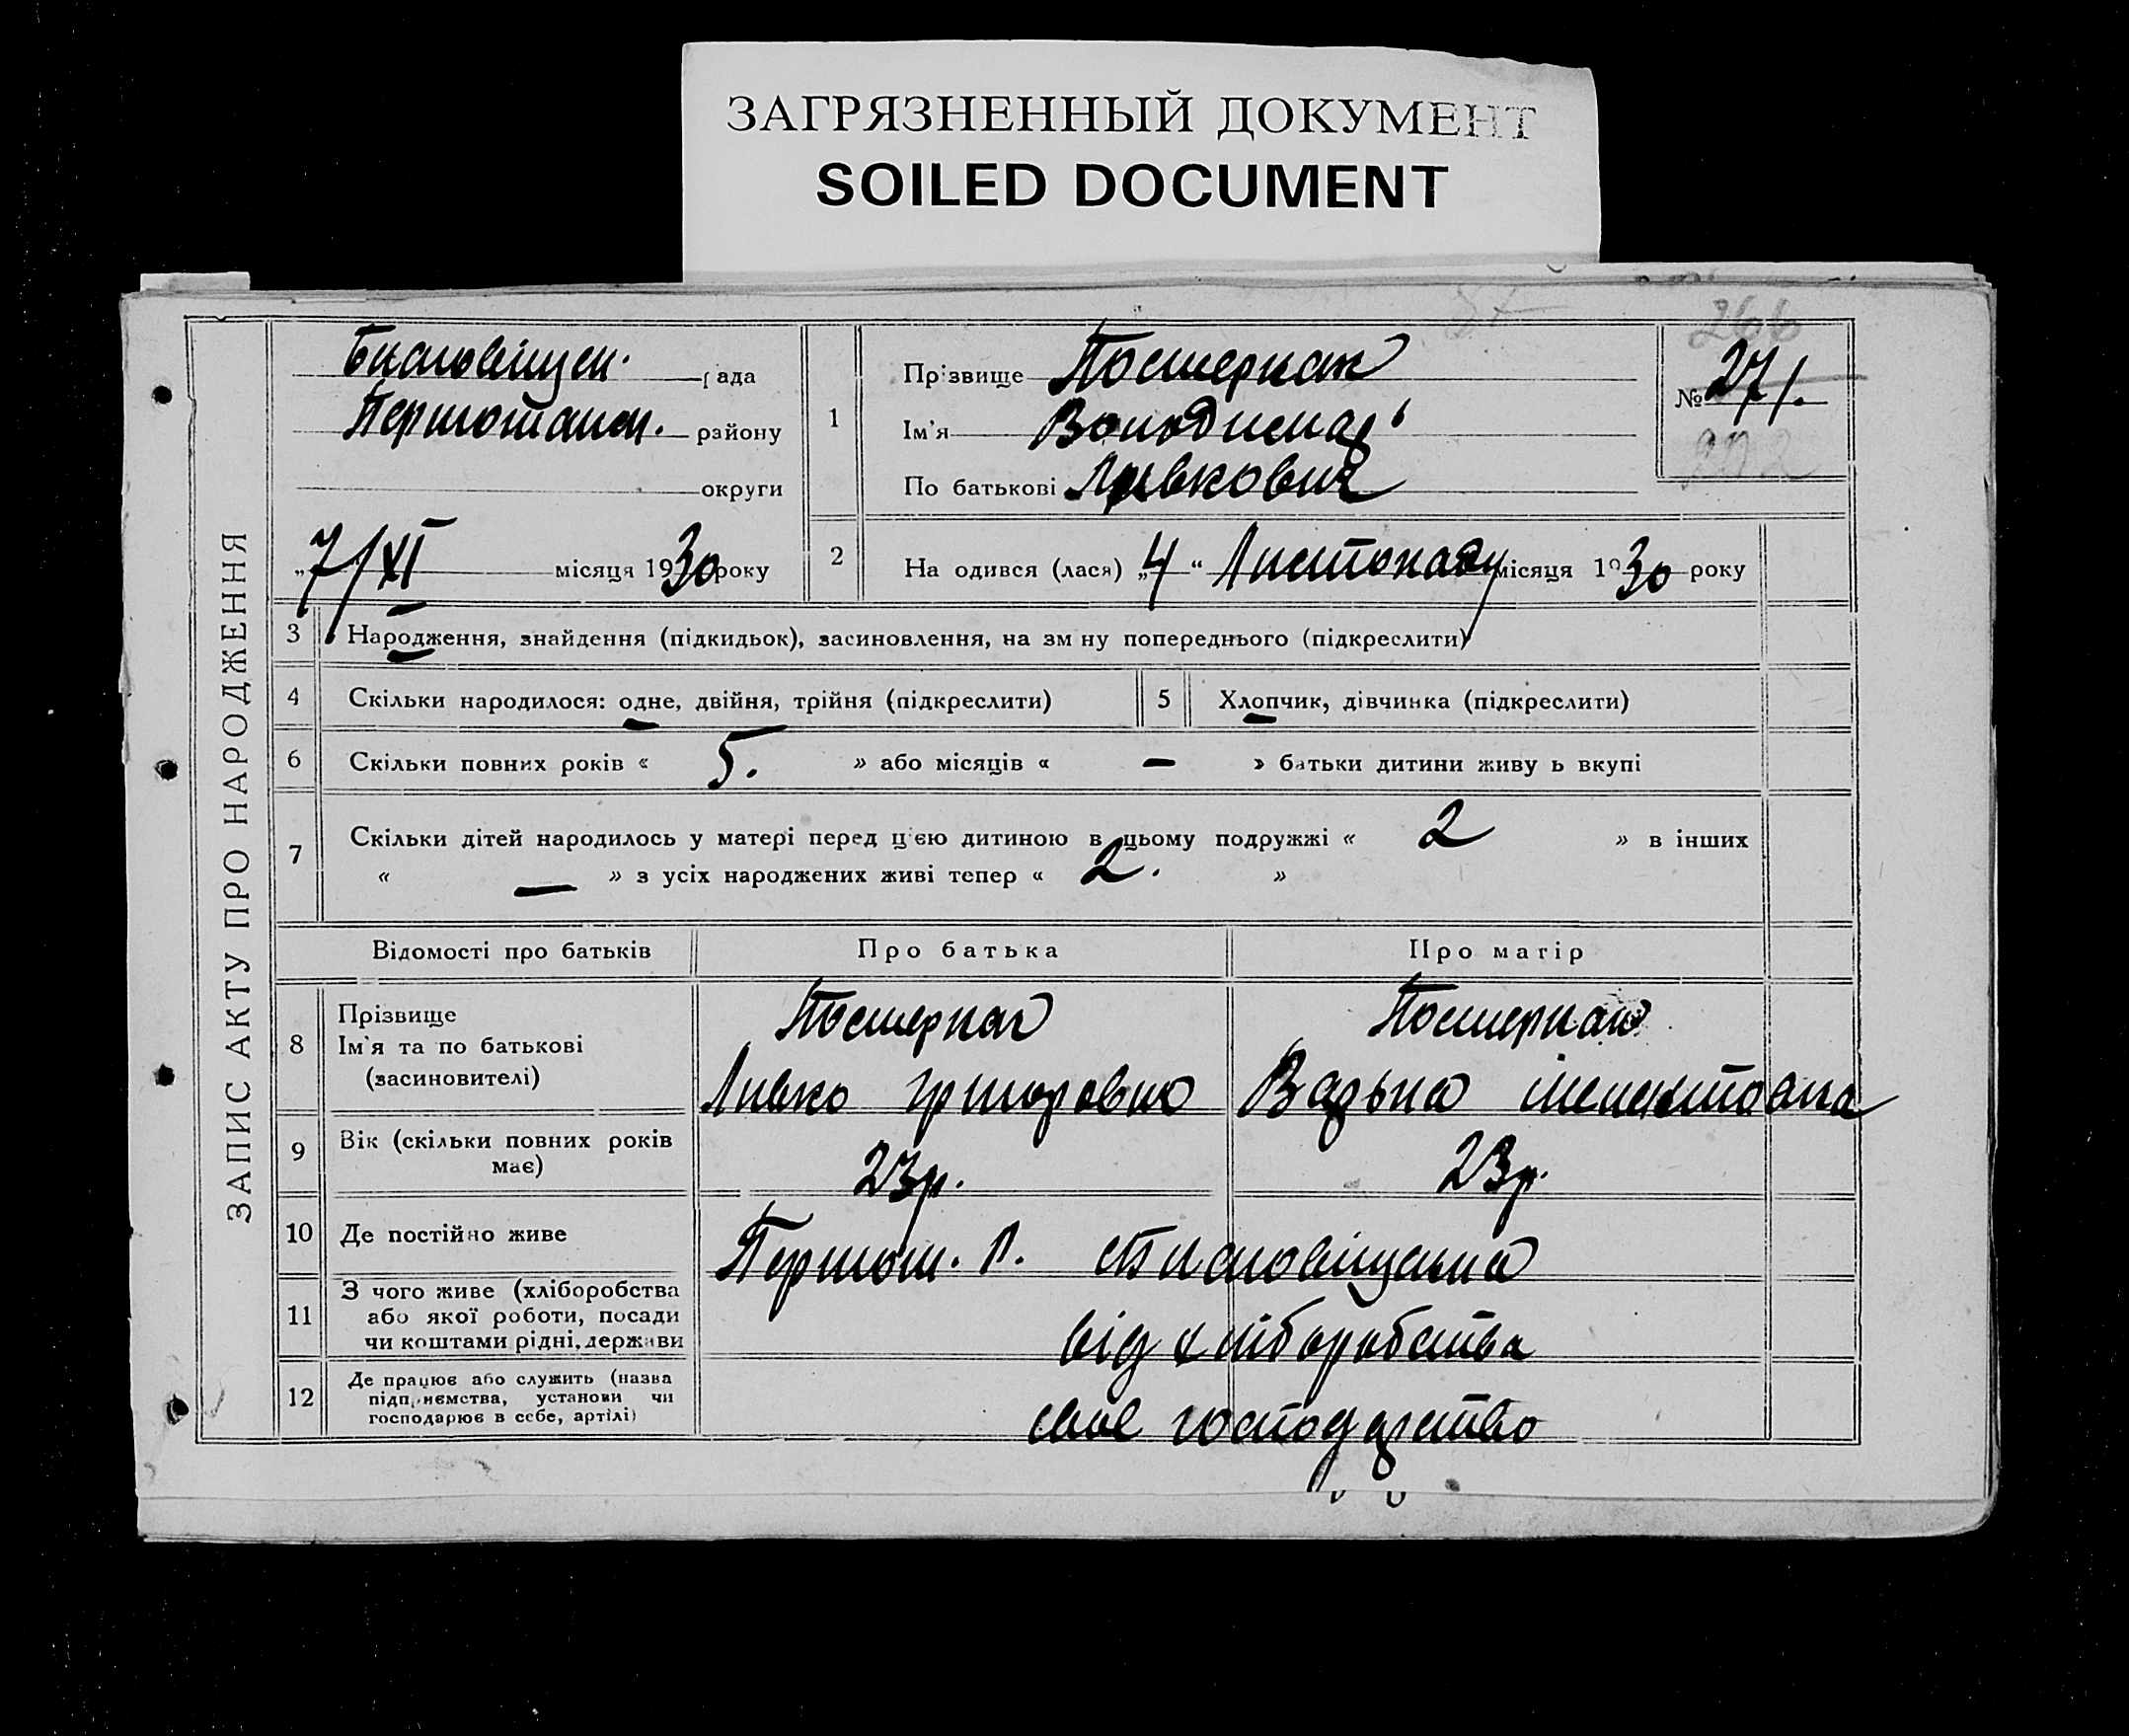 ЗАГРЯЗНЕННЫЙ ДОКУМЕНТ
SOILED DOCUMENT
ЗАПИС АКТУ ПРО НАРОДЖЕННЯ
рада
району
округи
"7/XI місяця 1930 року
266
№ 271.
202
1
Прізвище Постернак
Ім'я Володимар
По батькові Лівкович
2 На одився (лася) „4" Листопаду місяця 1930 року
3 Народження, знайдення (підкидьок), засиновлення, на зм ну попереднього (підкреслити)
4 Скільки народилося: одне, двійня, трійня (підкреслити) 5 Хлопчик, дівчинка (підкреслити)
6 Скільки повних років « 5. » або місяців « — » батьки дитини живу ь вкупі
7 Скільки дітей народилось у матері перед ц'єю дитиною в цьому подружжі « 2 » в інших
« — » з усіх народжених живі тепер « 2. »
Відомості про батьків Про батька Про матір
8 Прізвище
Ім'я та по батькові
(засиновителі)
Постернак Постернак
Ливко
9 Вік (скільки повних років
має)
23р. 23р.
10 Де постійно живе
11 З чого живе (хліборобства
або якої роботи, посади
чи коштами рідні, держави
від хліборобства
12 Де працює або служить (назва
підприємства, установи чи
господарює в себе, артілі)
своє господарство